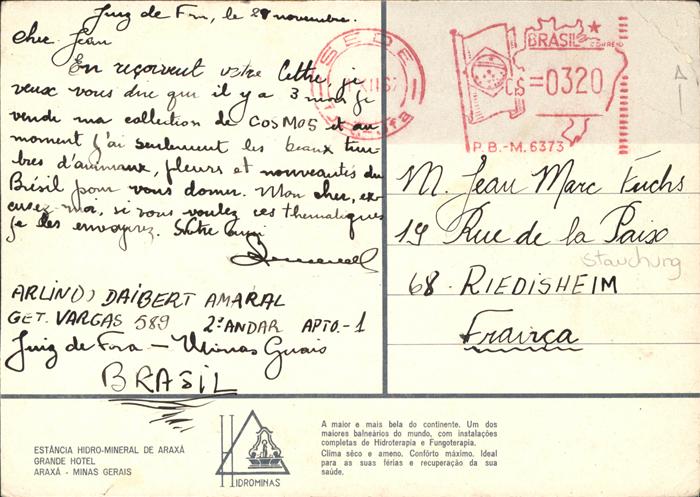 Juiz de Fora, le 29 novembre.
cher Jean
En reçorvent votre lettre, je
veux vous dire que il y a 3 mois je
vende ma collection de COSMOS et au
moment j'ai seulement les beaux tim-
bres d'animaux, fleurs et nouveautés du
Brésil pour vous donner. Mon cher, ex-
cusez-moi, si vous voulez ces thematiques
je les envoyez. Votre ami
ARLINDO DAIBERT AMARAL
GET. VARGAS 589 2º ANDAR APTO.-1
Juiz de Fora - Minas Gerais
BRASIL
SEDE
XII 67
BRASIL
CORREIO
CR$ =0320
P.B.-M.6373
M. Jean Marc Fuchs
19 Rue de la Paix
Stauchung
68. RIEDISHEIM
França
ESTÂNCIA HIDRO-MINERAL DE ARAXÁ
GRANDE HOTEL
ARAXÁ - MINAS GERAIS
HIDROMINAS
A maior e mais bela do continente. Um dos
maiores balneários do mundo, com instalações
completas de Hidroterapia e Fungoterapia.
Clima sêco e ameno. Confôrto máximo. Ideal
para as suas férias e recuperação da sua
saúde.